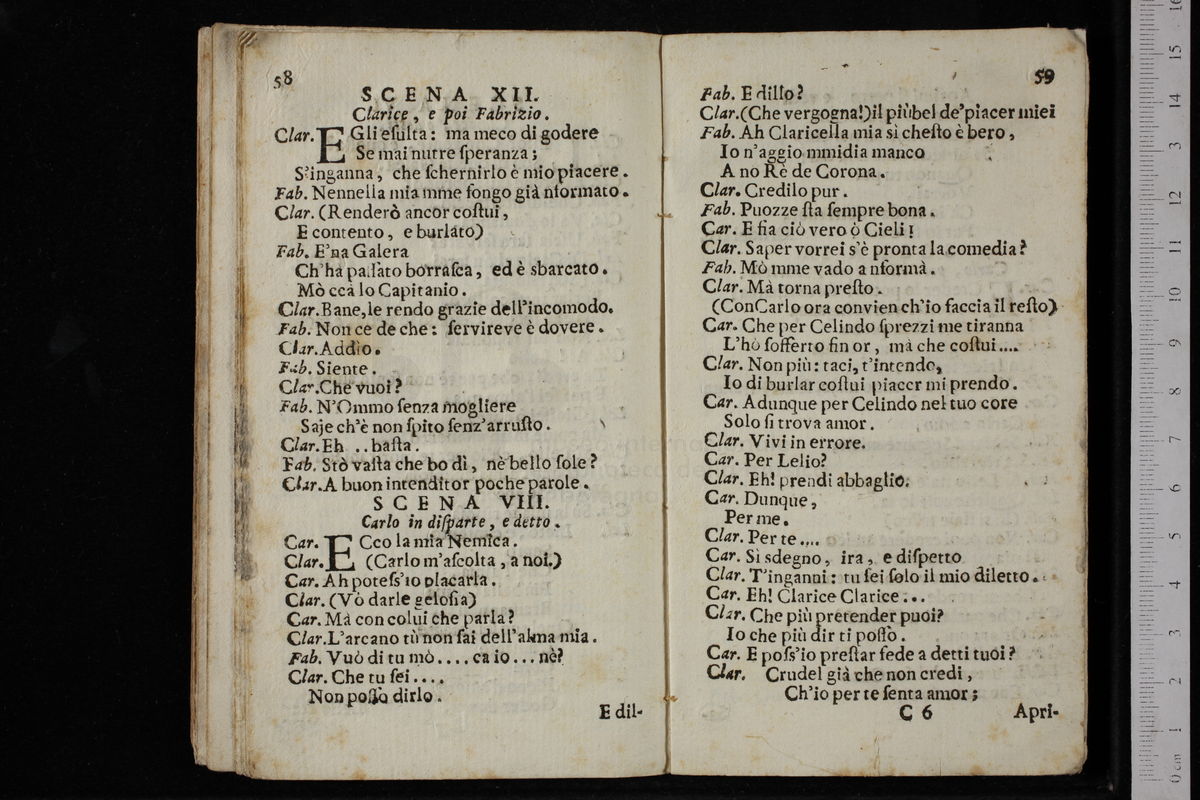 58
SCENA XII.
Clarice, e poi Fabrizio.
Clar. EGli eſulta: ma meco di godere
Se mai nutre ſperanza;
S'inganna, che ſchernirlo è mio piacere.
Fab. Nennella mia mme ſongo già nformato.
Clar. (Renderò ancor coſtui,
E contento, e burlato)
Fab. E'na Galera
Ch'ha paſſato borraſca, ed è sbarcato.
Mò ccà lo Capitanio.
Clar. Bane, le rendo grazie dell'incomodo.
Fab. Non ce de che: ſervireve è dovere.
Clar. Addio.
Fab. Siente.
Clar. Che vuoi?
Fab. N'Ommo ſenza mogliere
Saje ch'è non ſpito ſenz'arruſto.
Clar. Eh .. baſta.
Fab. Stò vaſta che bo dì, nè bello ſole?
Clar. A buon intenditor poche parole.
SCENA VIII.
Carlo in diſparte, e detto.
Car. ECco la mia Nemica.
Clar. (Carlo m'aſcolta, a noi.)
Car. Ah poteſs'io placarla.
Clar. (Vò darle geloſia)
Car. Mà con colui che parla?
Clar. L'arcano tù non ſai dell'alma mia.
Fab. Vuó di tu mò.... ca io... nè?
Clar. Che tu ſei....
Non poſſo dirlo.
E dil-
59
Fab. E dillo?
Clar. (Che vergogna!) il piùbel de'piacer miei
Fab. Ah Claricella mia si cheſto è bero,
Io n'aggio mmidia manco
A no Rè de Corona.
Clar. Credilo pur.
Fab. Puozze ſta ſempre bona.
Car. E fia ciò vero ò Cieli!
Clar. Saper vorrei s'è pronta la comedia?
Fab. Mò mme vado a nformà.
Clar. Mà torna preſto.
(ConCarlo ora convien ch'io faccia il reſto)
Car. Che per Celindo ſprezzi me tiranna
L'hò ſofferto fin or, mà che coſtui....
Clar. Non più: taci, t'intendo,
Io di burlar coſtui piacer mi prendo.
Car. Adunque per Celindo nel tuo core
Solo ſi trova amor.
Clar. Vivi in errore.
Car. Per Lelio?
Clar. Eh! prendi abbaglio.
Car. Dunque,
Per me.
Clar. Per te....
Car. Sì sdegno, ira, e diſpetto
Clar. T'inganni: tu ſei ſolo il mio diletto.
Car. Eh! Clarice Clarice...
Clar. Che più pretender puoi?
Io che più dir ti poſſo.
Car. E poſs'io preſtar fede a detti tuoi?
Clar. Crudel già che non credi,
Ch'io per te ſenta amor;
C 6 Apri-